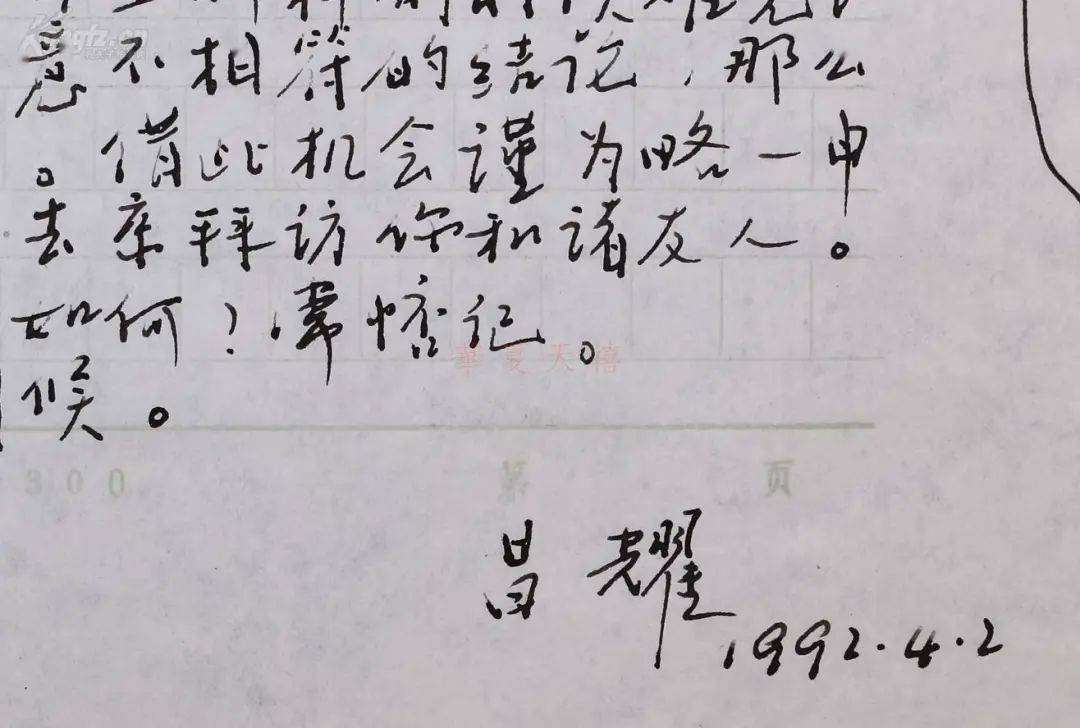 意不相符的结论，那么
。借此机会谨为略一申
去京拜访你和诸友人。
如何？常惦记。
候。
華夏天禧
300 第 页
昌耀
1992.4.2